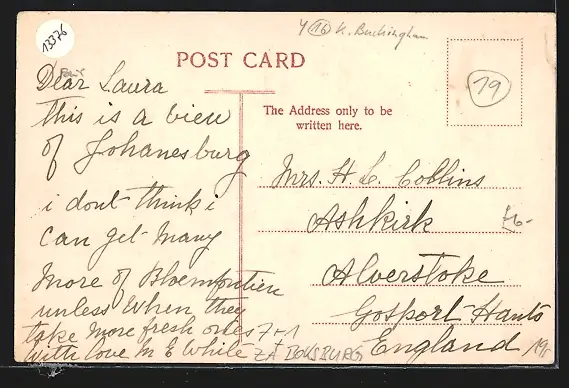 13376
Y 16 K. Buckingham
POST CARD
19
The Address only to be
written here.
Dear Laura
this is a view
of Johanesburg
i dont think i
can get many
more of Bloemfontien
unless when they
take more fresh ones
with love M E White
Mrs. H. L. Collins
Ashkirk
Alverstoke
Gosport Hants
England
7+1
ZA BOKSBURG